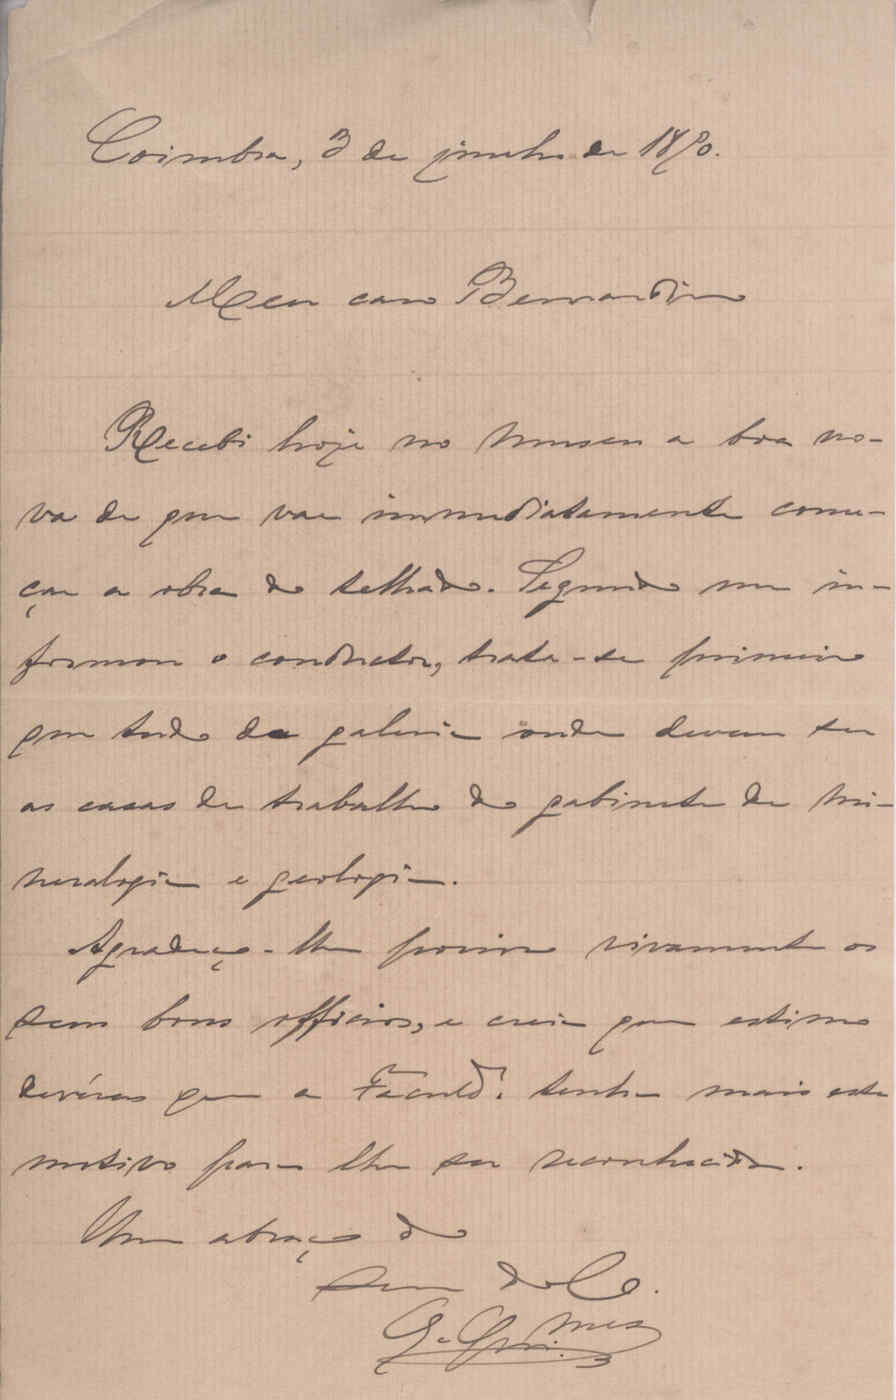 Coimbra, 3 de junho de 1890.
Meu caro Bernardino
Recebi hoje no Museu a boa no-
va de que vae immediatamente come-
çar a obra do telhado. Segundo me in-
formou o conductor, trata-se primeiro
que tudo da galeria onde devem ser
as casas de trabalho do gabinete de mi-
neralogia e geologia.
Agradeço-lhe porisso vivamente os
seus bons officios, e creia que estimo
devéras que a Faculd.e tenha mais este
motivo para lhe ser reconhecida.
Um abraço do
seu
G. Guimes